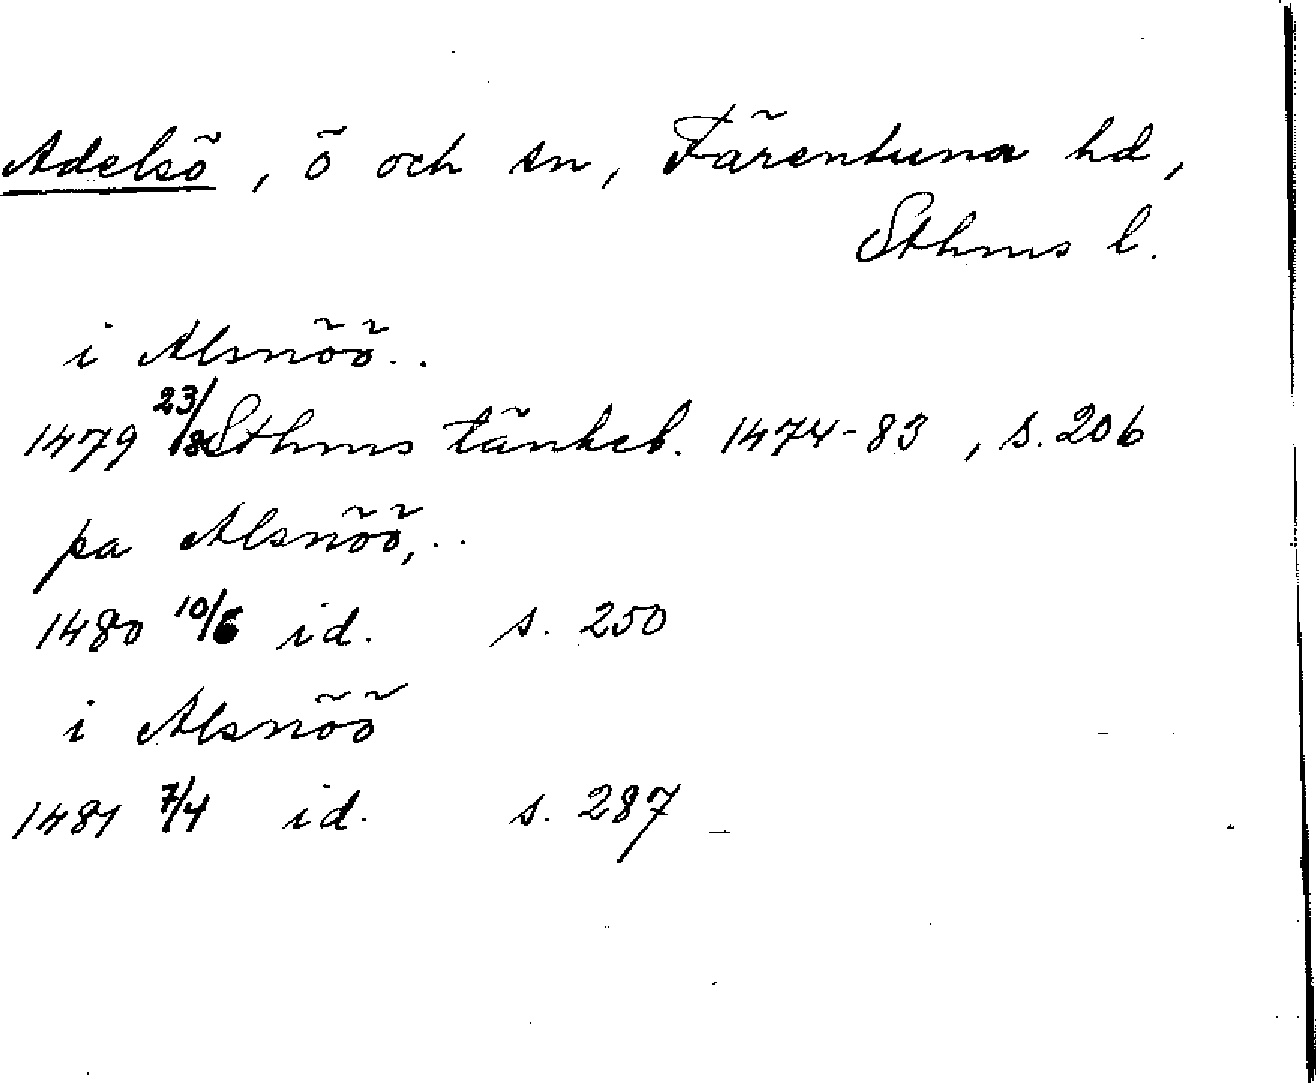 Adelsö, ö och sn, Färentuna hd,
Sthms l.
i Alsnöö..
1479 23/8 Sthms tänkeb. 1474-83, s. 206
pa Alsnöö,..
1480 10/6 id. s. 250
i Alsnöö
1481 7/4 id. s. 287